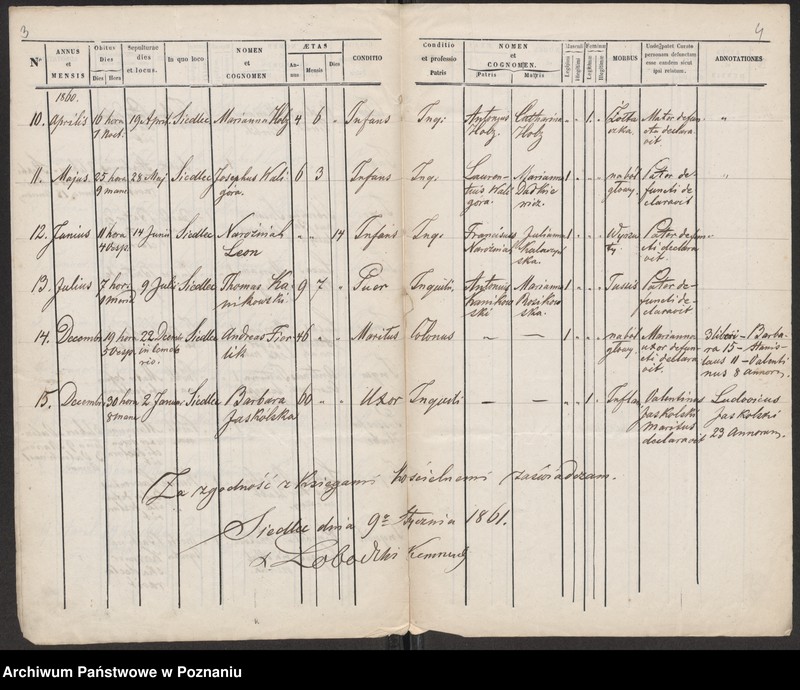 3
4
Nº
ANNUS et MENSIS
Obitus Dies
Dies
Hora
Sepulturae dies et locus.
In quo loco
NOMEN et COGNOMEN
ÆTAS
Annus
Mensis
Dies
CONDITIO
Conditio et professio Patris
NOMEN et COGNOMEN.
Patris
Matris
Masculi
Feminae
Legitimi
Illegitimi
MORBUS
ADNOTATIONES
1860.
10. Aprilis 16 hora 7 noct. 19 April Siedlec Marianna Holz 4 6 " Infans Inq: Antonius Holz. Catharina Holz " " 1. " Mater defunctae declaravit "
11. Majus 25 hora 9 mane. 28 Maj Siedlec Josephus Waligóra. 6 3 Infans Inq. Laurentius Waligóra. Marianna 1 " " " na ból głowy. Pater defuncti declaravit "
12. Junius 11 hora 4 vesp. 14 Junii Siedlec Naroźniak Leon " " 14 Infans Inq. Franciscus Naroźniak Julianna 1 " " " Wyrzuty. Pater defuncti declaravit.
13. Julius 7 hora 9 Julii Siedlec Thomas Kanikowski 9 7 " Puer Inquili. Antonius Kanikowski Marianna 1 " " " Tussis Pater defuncti declaravit
14. Decembr 19 hora 5 vesp. 22 Decem Siedlec Andreas 46 " " Maritus Colonus — — 1 " " " na ból głowy. Marianna uxor defuncti declaravit. 3 liberi – Barbara 15 – Stanislaus 11 – Valentinus 8 annorum.
15. Decembr 30 hora 8 mane 2 Januar Siedlec Barbara Jaskólska 60 " " Uxor — — " " 1 " Valentinus Jaskólski maritus declaravit Ludovicus Jaskólski 23 Annorum.
Za zgodność z księgami kościelnemi zaświadczam.
Siedlec dnia 9º Stycznia 1861.
Archiwum Państwowe w Poznaniu